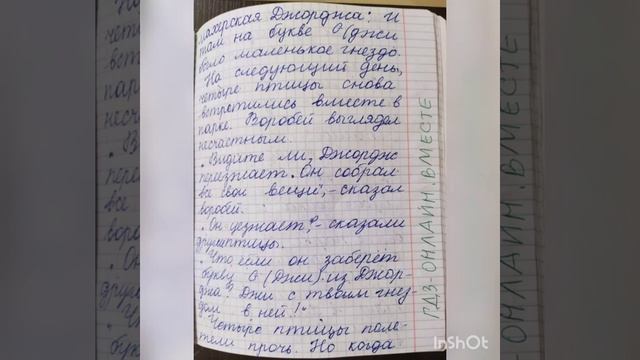 махерская Джорджа: И
там на букве G (джи
было маленькое гнездо.
На следующий день,
четыре птицы снова
встретились вместе в
парке. Воробей выглядел
несчастным.
„Видите ли, Джордж
переезжает. Он собрал
все свои вещи", - сказал
воробей.
„Он уезжает?" - сказали
другие птицы.
„Что если он заберёт
букву G (Джи) из Джор-
джа? Джи с твоим гнез-
дом в ней!"
Четыре птицы поле-
тели прочь. Но когда
ГДЗ.ОНЛАЙН.ВМЕСТЕ
InShOt